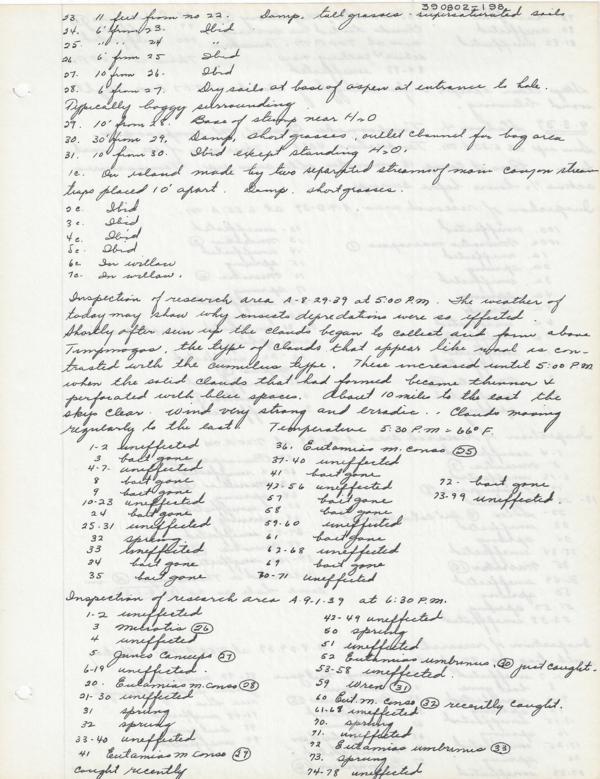 390802-198
23. 11 feet from no 22. Damp, tall grasses - supersaturated soils
24. 6' from 23. Ibid
25. " " 24 "
26 6' from 25 Ibid
27. 10' from 26. Ibid
28. 6' from 27. Dry soils at base of aspen at entrance to hole.
Typically boggy surrounding
29. 10' from 28. Base of stump near H2O
30. 30' from 29, Damp, short grasses, outlet channel for bog area
31. 10' from 30. Ibid except standing H2O.
1c. On island made by two separated streams of main canyon stream
traps placed 10' apart. Damp. short grasses.
2c Ibid
3c. Ibid
4c Ibid
5c. Ibid
6c In willow
7c. In willow.
Inspection of research area A-8-29-39 at 5:00 P.M. The weather of
today may show why insects depredations were so effected.
Shortly after sun up the clouds began to collect and form above
Timpmogos, the type of clouds that appear like wool is con-
trasted with the cumulus type. These increased until 5:00 P.M
when the solid clouds that had formed became thinner &
perforated with blue spaces. About 10 mile to the east the
sky is clear. Wind very strong and erradic.. Clouds moving
regularly to the east. Temperature 5:30 P.M = 66° F.
1-2 uneffected
3 bait gone
4-7. uneffected
8 bait gone
9 bait gone
10-23 uneffected
24 bait gone
25-31 uneffected
32 sprung
33 uneffected
34 bait gone
35 bait gone
36. Eutamias m. conso (25)
37-40 uneffected
41 bait gone
42-56 uneffected
57 bait gone
58 bait gone
59-60 uneffected
61 bait gone
62-68 uneffected
69 bait gone
70-71 uneffected
72- bait gone
73-99 uneffected.
Inspection of research area A-9-1-39 at 6:30 P.M.
1-2 uneffected
3 Microtis (26)
4 uneffected
5 (27)
6-19 uneffected.
20. Eutamias m. conso (28)
21-30 uneffected
31 sprung
32 sprung
33-40 uneffected
41 Eutamias m conso (29)
caught recently
42-49 uneffected
50 sprung
51 uneffected
52 Eutamias umbrinus, (30) just caught.
53-58 uneffected.
59 wren (31)
60 Eut. m. conso (32) recently caught.
61-68 uneffected
70. sprung
71. uneffected
72 Eutamias umbrinus (33)
73. sprung
74-78 uneffected